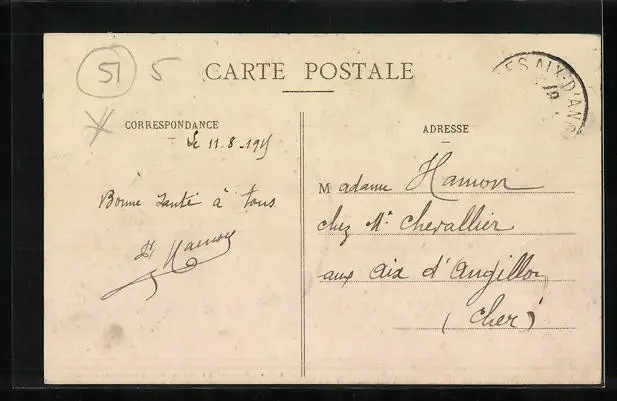 51 5
CARTE POSTALE
LES AIX-D'ANG
CORRESPONDANCE
ADRESSE
le 11.8.1915
Bonne santé à tous
H Hamon
Madame Hamon
chez Mr Chevallier
aux Aix d'Angillon
(Cher)